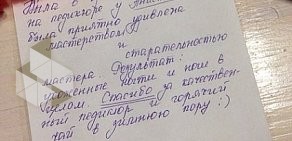 была в
на педикюре у
была приятно удивлена
мастерством
и
старательностью
мастера. Результат:
ухоженные ногти и ноги в
целом. Спасибо за качествен-
ный педикюр и горячий
чай в зимнюю пору :)